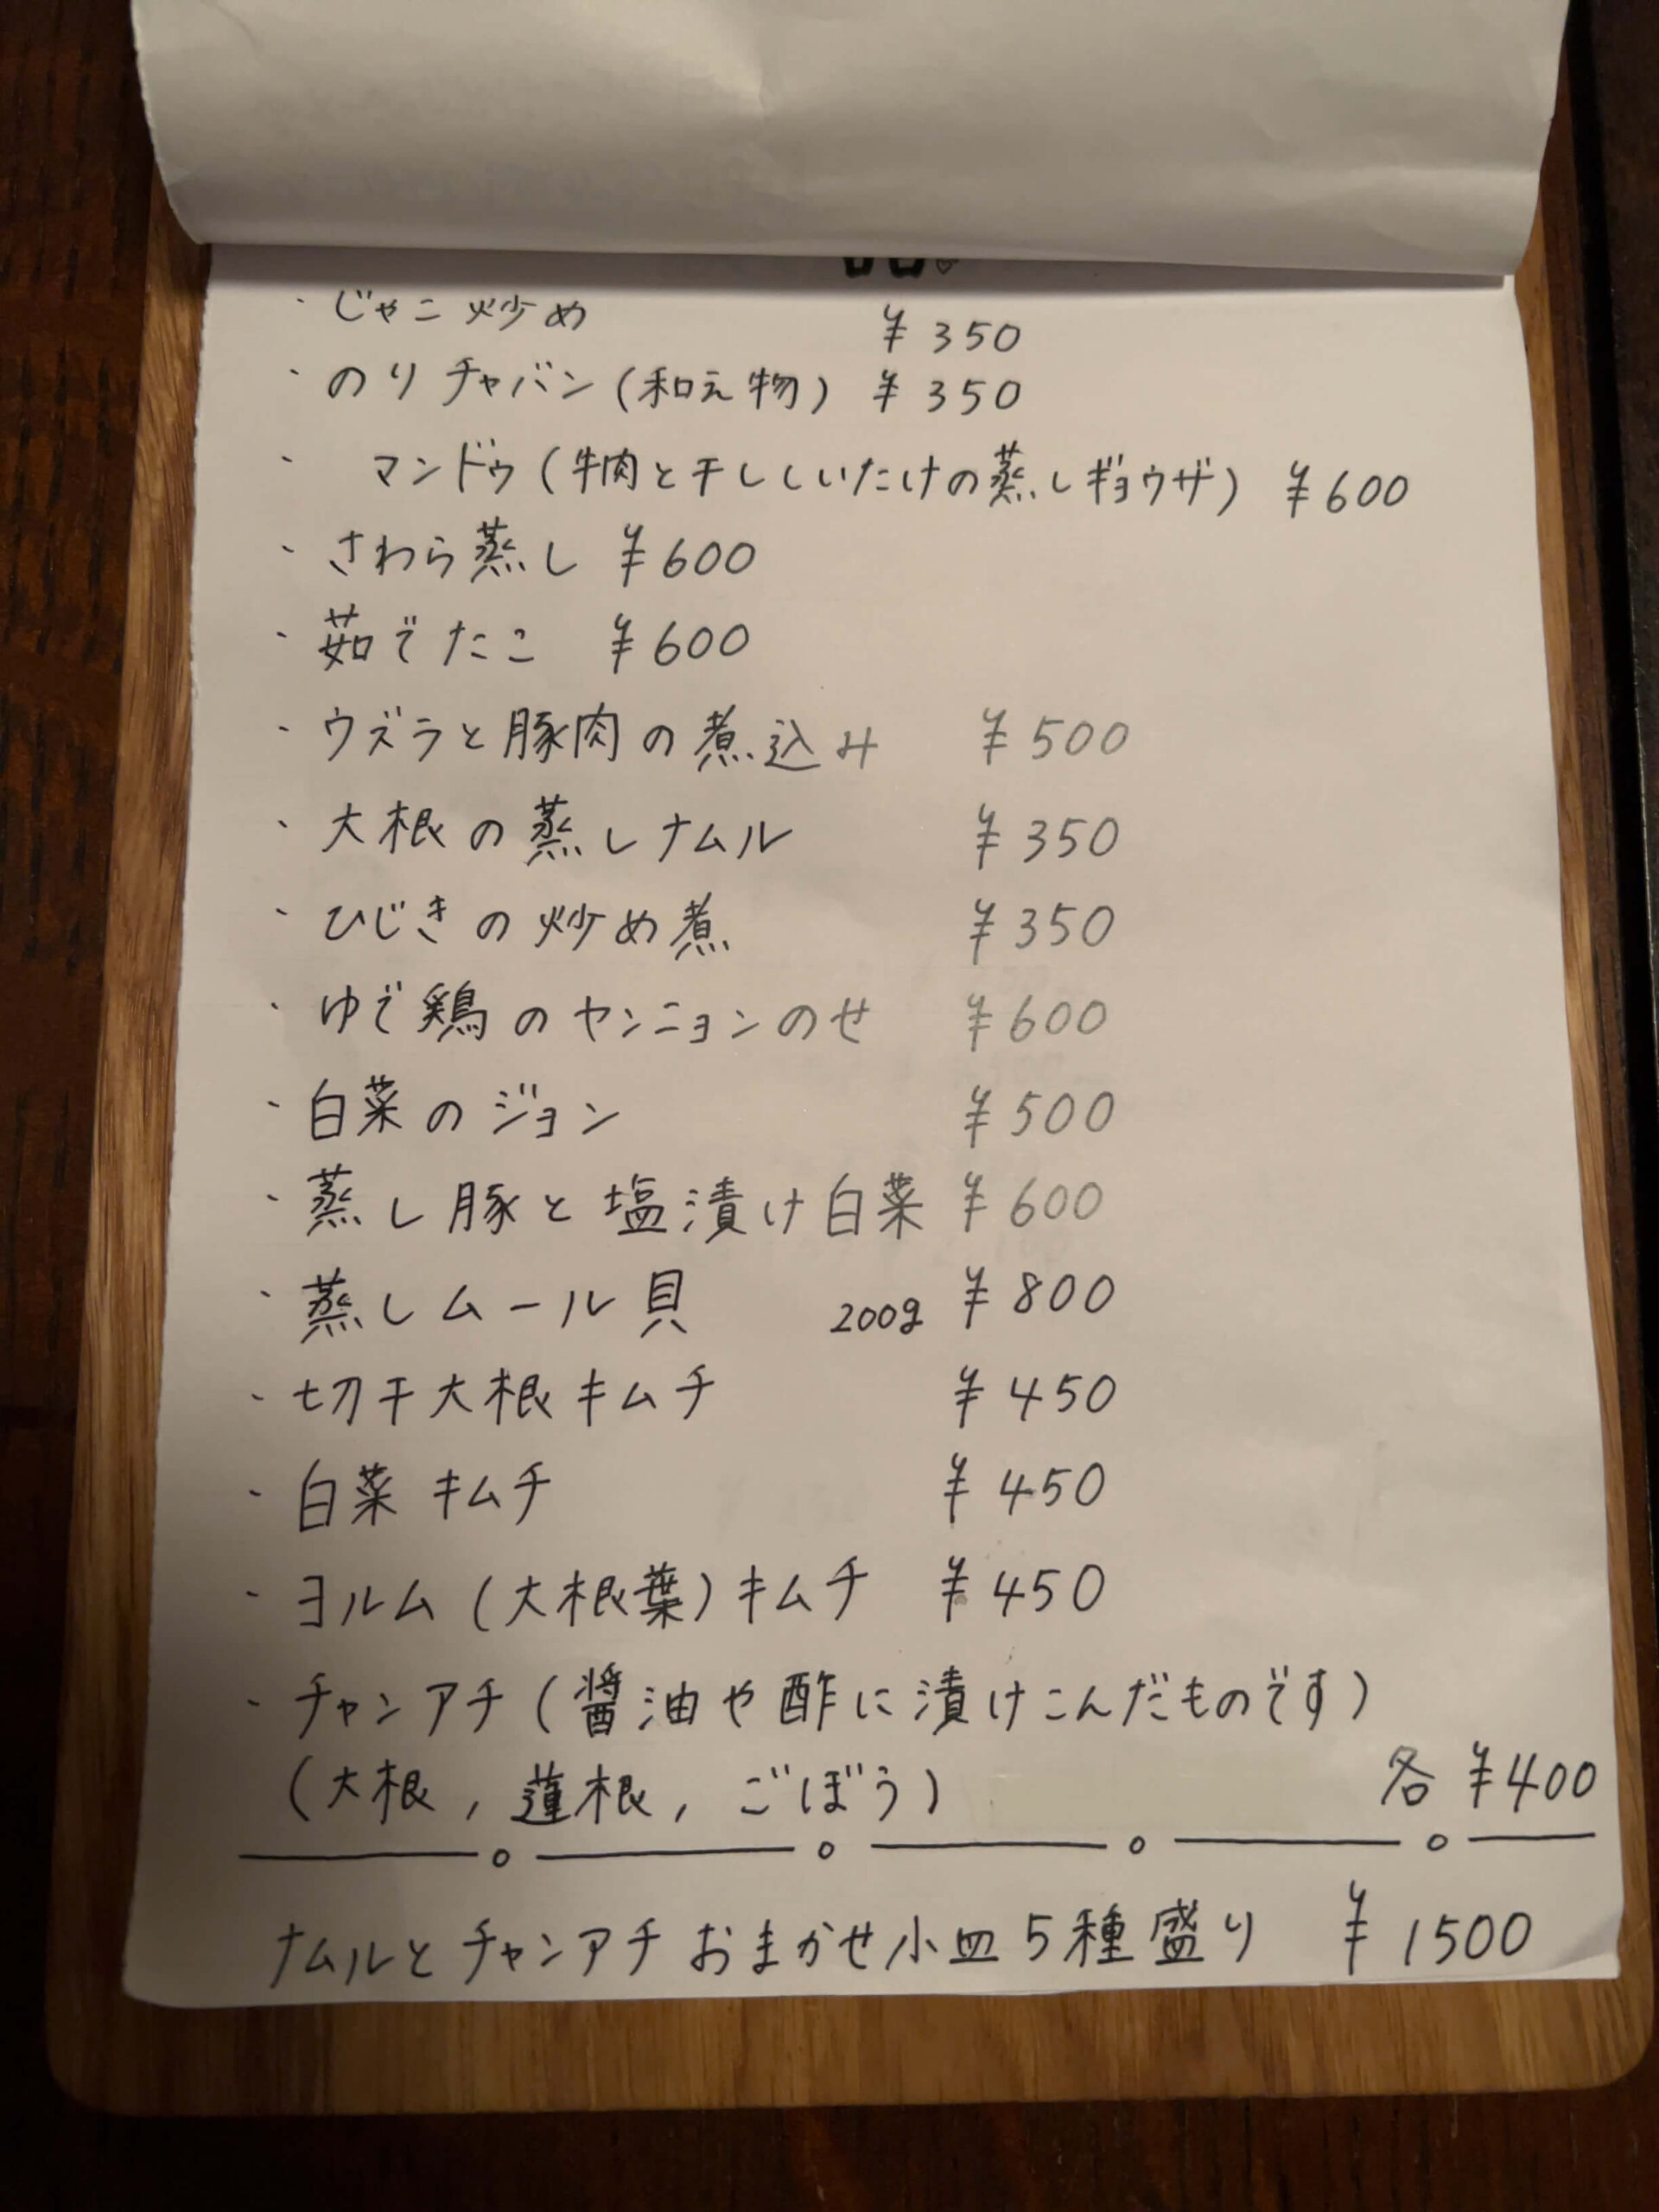 ・じゃこ炒め ¥350
・のりチャバン(和え物) ¥350
・マンドゥ(牛肉と干ししいたけの蒸しギョウザ) ¥600
・さわら蒸し ¥600
・茹でたこ ¥600
・ウズラと豚肉の煮込み ¥500
・大根の蒸しナムル ¥350
・ひじきの炒め煮 ¥350
・ゆで鶏のヤンニョンのせ ¥600
・白菜のジョン ¥500
・蒸し豚と塩漬け白菜 ¥600
・蒸しムール貝 200g ¥800
・切干大根キムチ ¥450
・白菜キムチ ¥450
・ヨルム(大根葉)キムチ ¥450
・チャンアチ(醤油や酢に漬けこんだものです)
(大根, 蓮根, ごぼう) 各¥400
ナムルとチャンアチおまかせ小皿5種盛り ¥1500